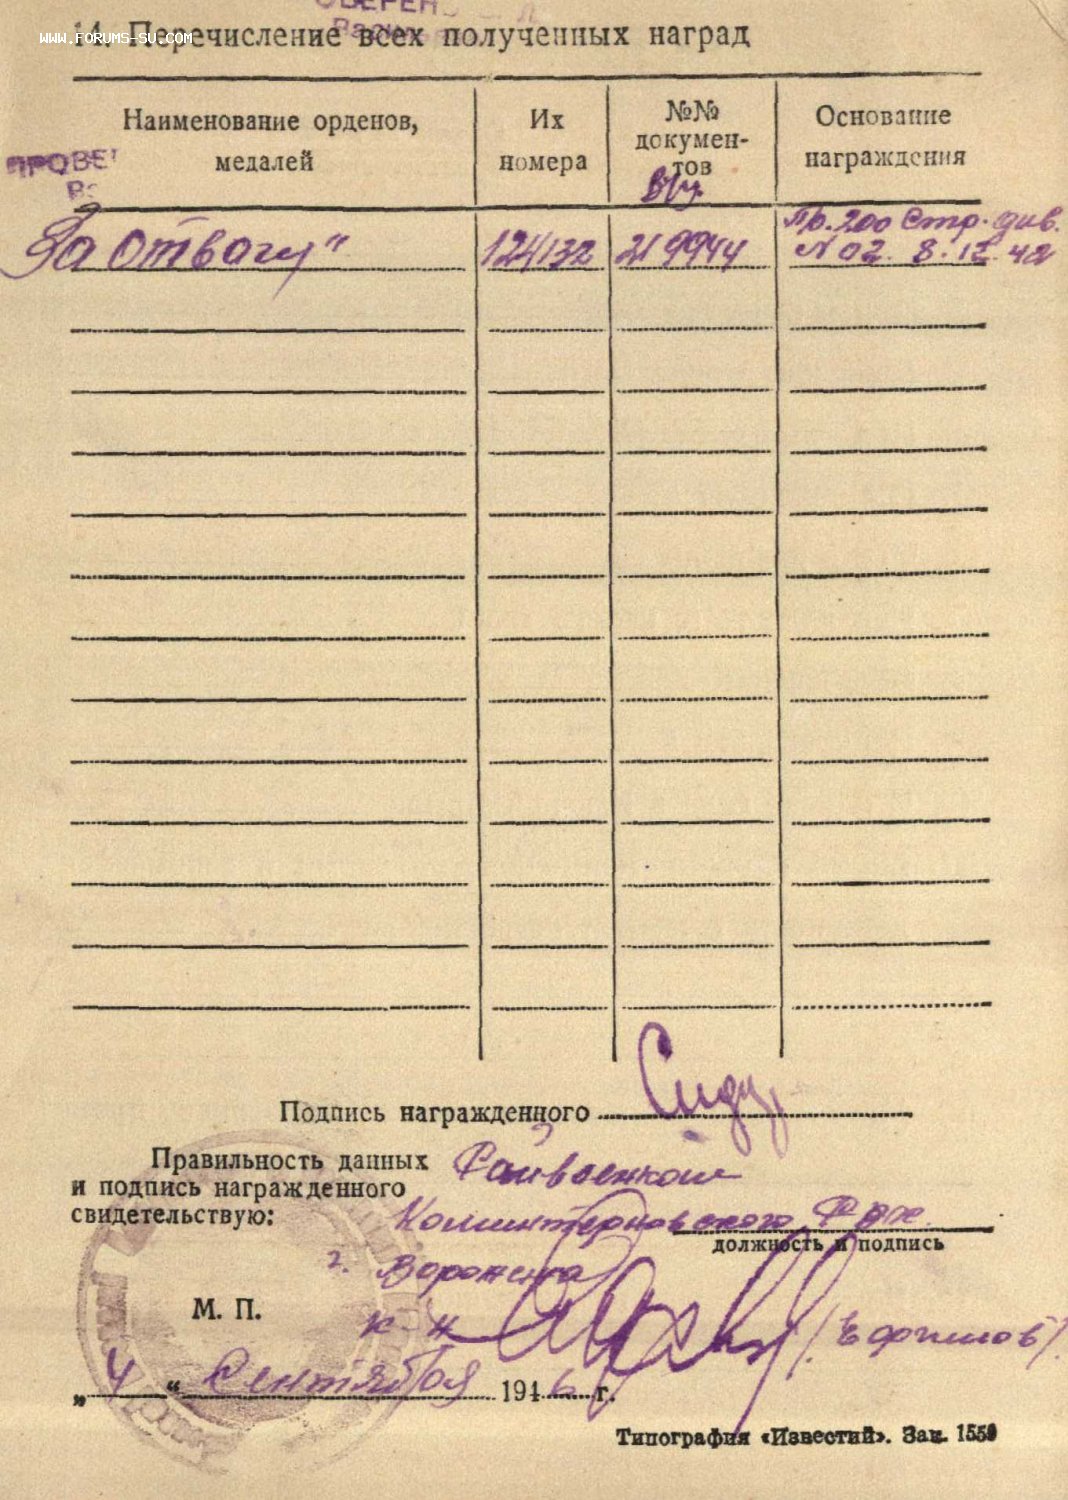 WWW.FORUMS-SU.COM
14. Перечисление всех полученных наград
Наименование орденов, медалей
Их номера
№№ документов
Основание награждения
ПРОВЕ
В/у
За отвагу"
124132
219944
Пр. 200 Стр. див.
N 02. 8.12.42
Подпись награжденного
Правильность данных
и подпись награжденного
свидетельствую:
Райвоенком
Коминтерновского РВК
должность и подпись
г. Воронежа
М. П.
/Ефимов/
„ 4 “ Сентября 1946 г.
Типография «Известий». Зак. 1559